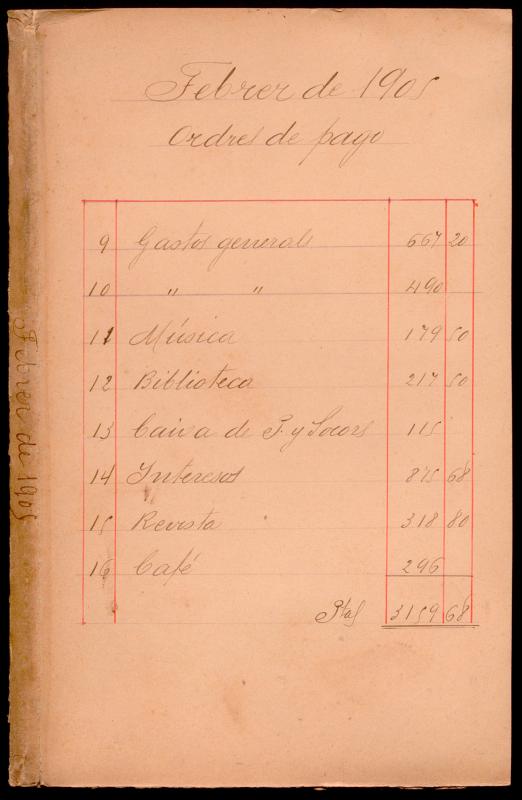 Febrer de 1905
Ordres de pago
9 Gastos generals 667 20
10 " " 490
11 Música 179 50
12 Biblioteca 217 50
13 Caixa de P. y Socors 115
14 Interesos 875 68
15 Revista 318 80
16 Café 296
Ptas 3159 68
Febrer de 1905